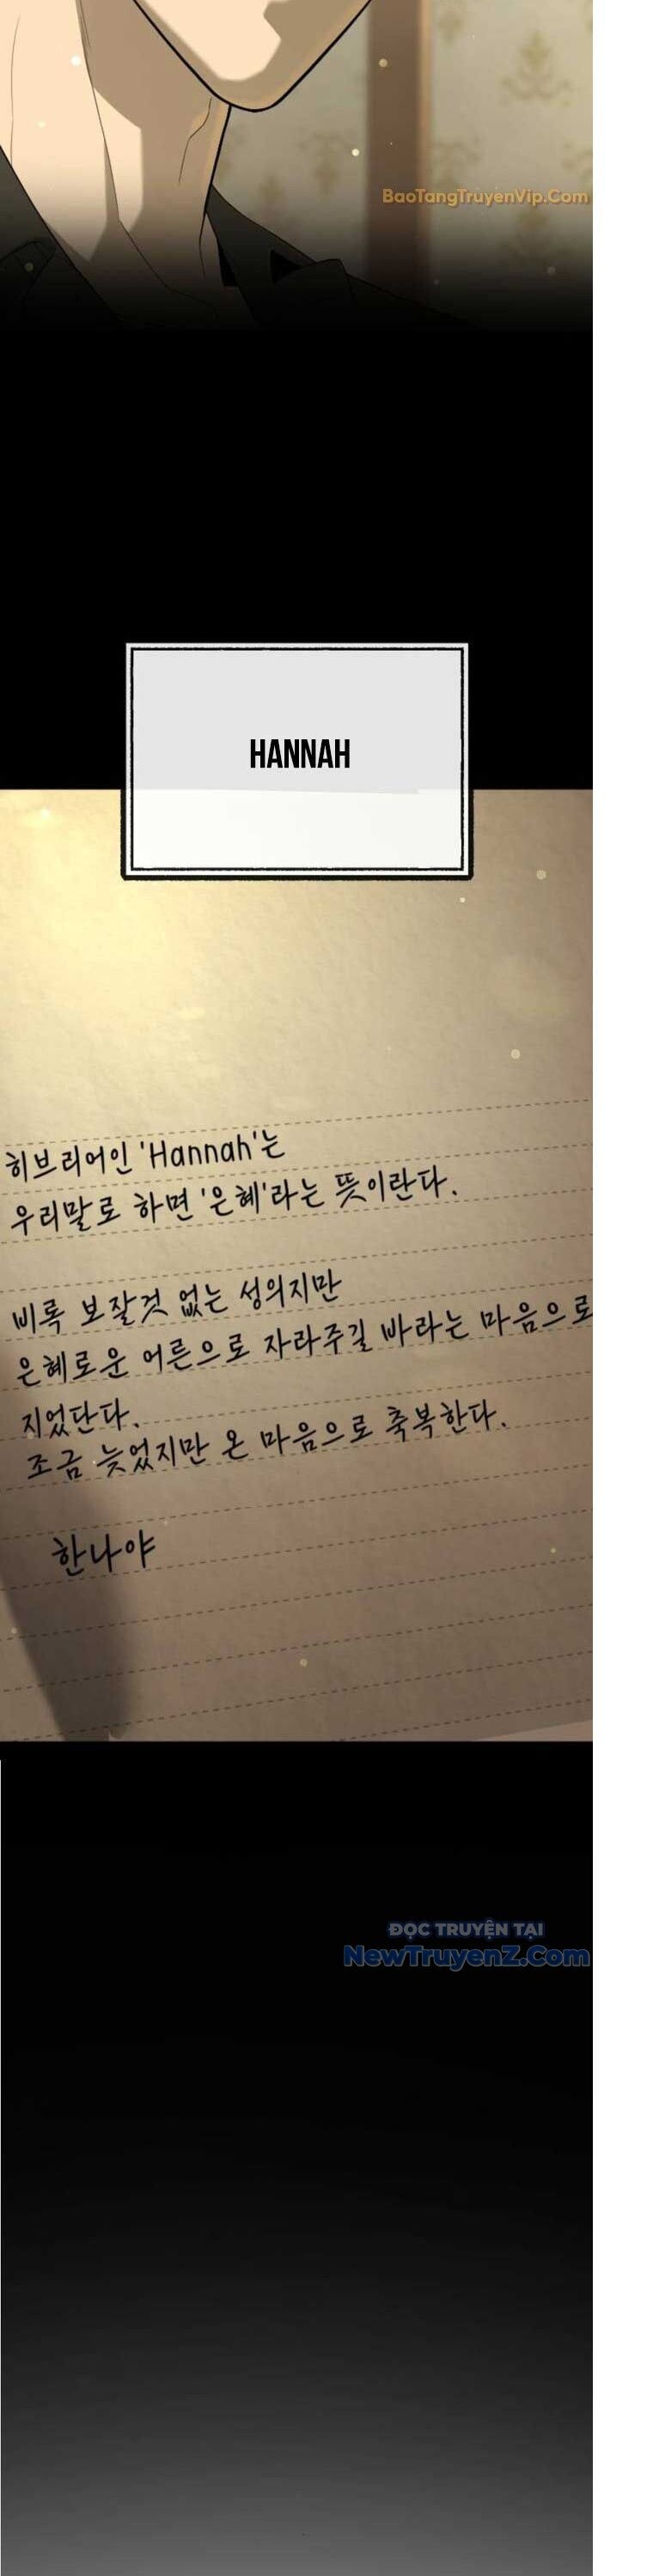 BaoTangTruyenVip.Com
HANNAH
히브리어인 'Hannah'는
우리말로 하면 '은혜'라는 뜻이란다.
비록 보잘것 없는 성의지만
은혜로운 어른으로 자라주길 바라는 마음으로
지었단다.
조금 늦었지만 온 마음으로 축복한다.
한나야
ĐỌC TRUYỆN TẠI
NewTruyenZ.Com